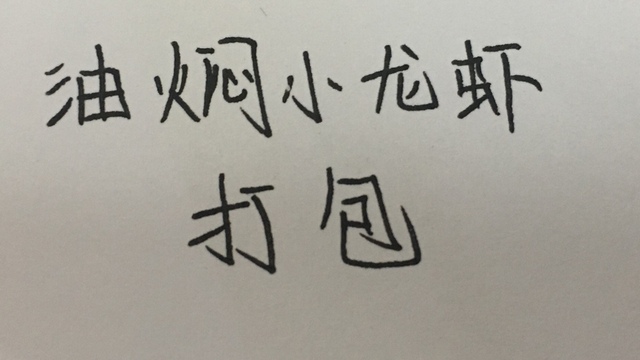 油焖小龙虾
打包